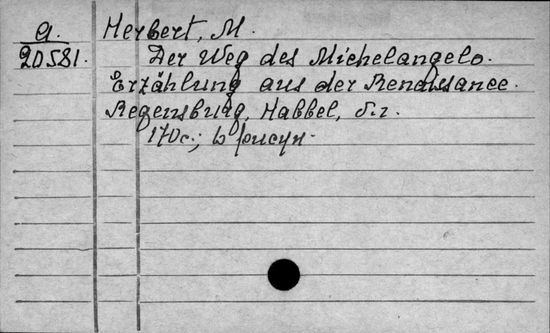 a.
20581.
Herbert, M.
Der Weg des Michelangelo.
Erzählung aus der Renaissance.
Regensburg, Habbel, б.г.
170с.; 6 рисун.